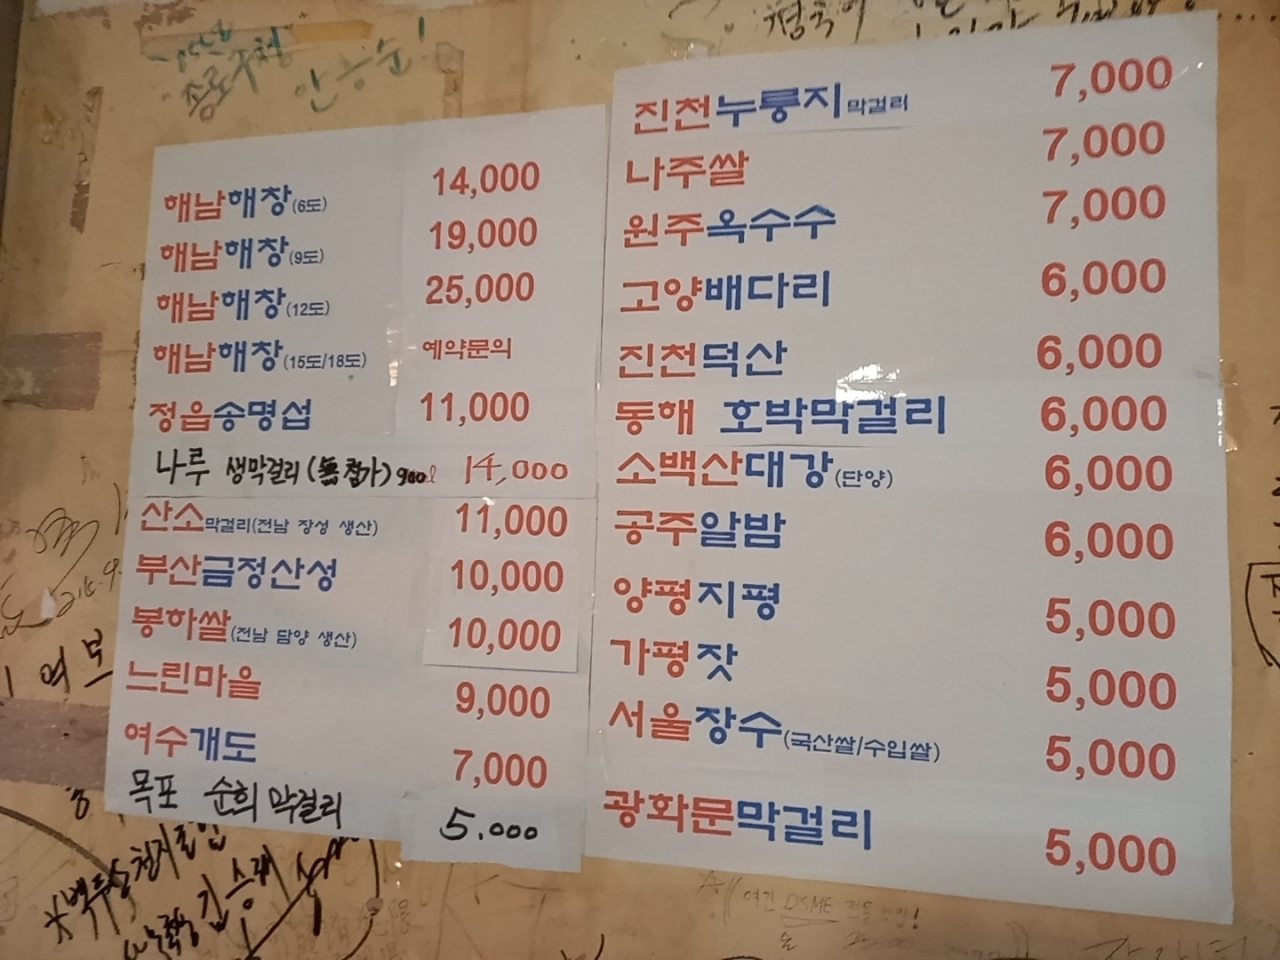 종로구청
안능순!
해남해창(6도) 14,000
해남해창(9도) 19,000
해남해창(12도) 25,000
해남해창(15도/18도) 예약문의
정읍송명섭 11,000
나루 생막걸리(無첨가) 900ml 14,000
산소막걸리(전남 장성 생산) 11,000
부산금정산성 10,000
봉하쌀(전남 담양 생산) 10,000
느린마을 9,000
여수개도 7,000
목포 순희 막걸리 5.000
진천누룽지막걸리 7,000
나주쌀 7,000
원주옥수수 7,000
고양배다리 6,000
진천덕산 6,000
동해 호박막걸리 6,000
소백산대강(단양) 6,000
공주알밤 6,000
양평지평 5,000
가평잣 5,000
서울장수(국산쌀/수입쌀) 5,000
광화문막걸리 5,000
여긴 DSME